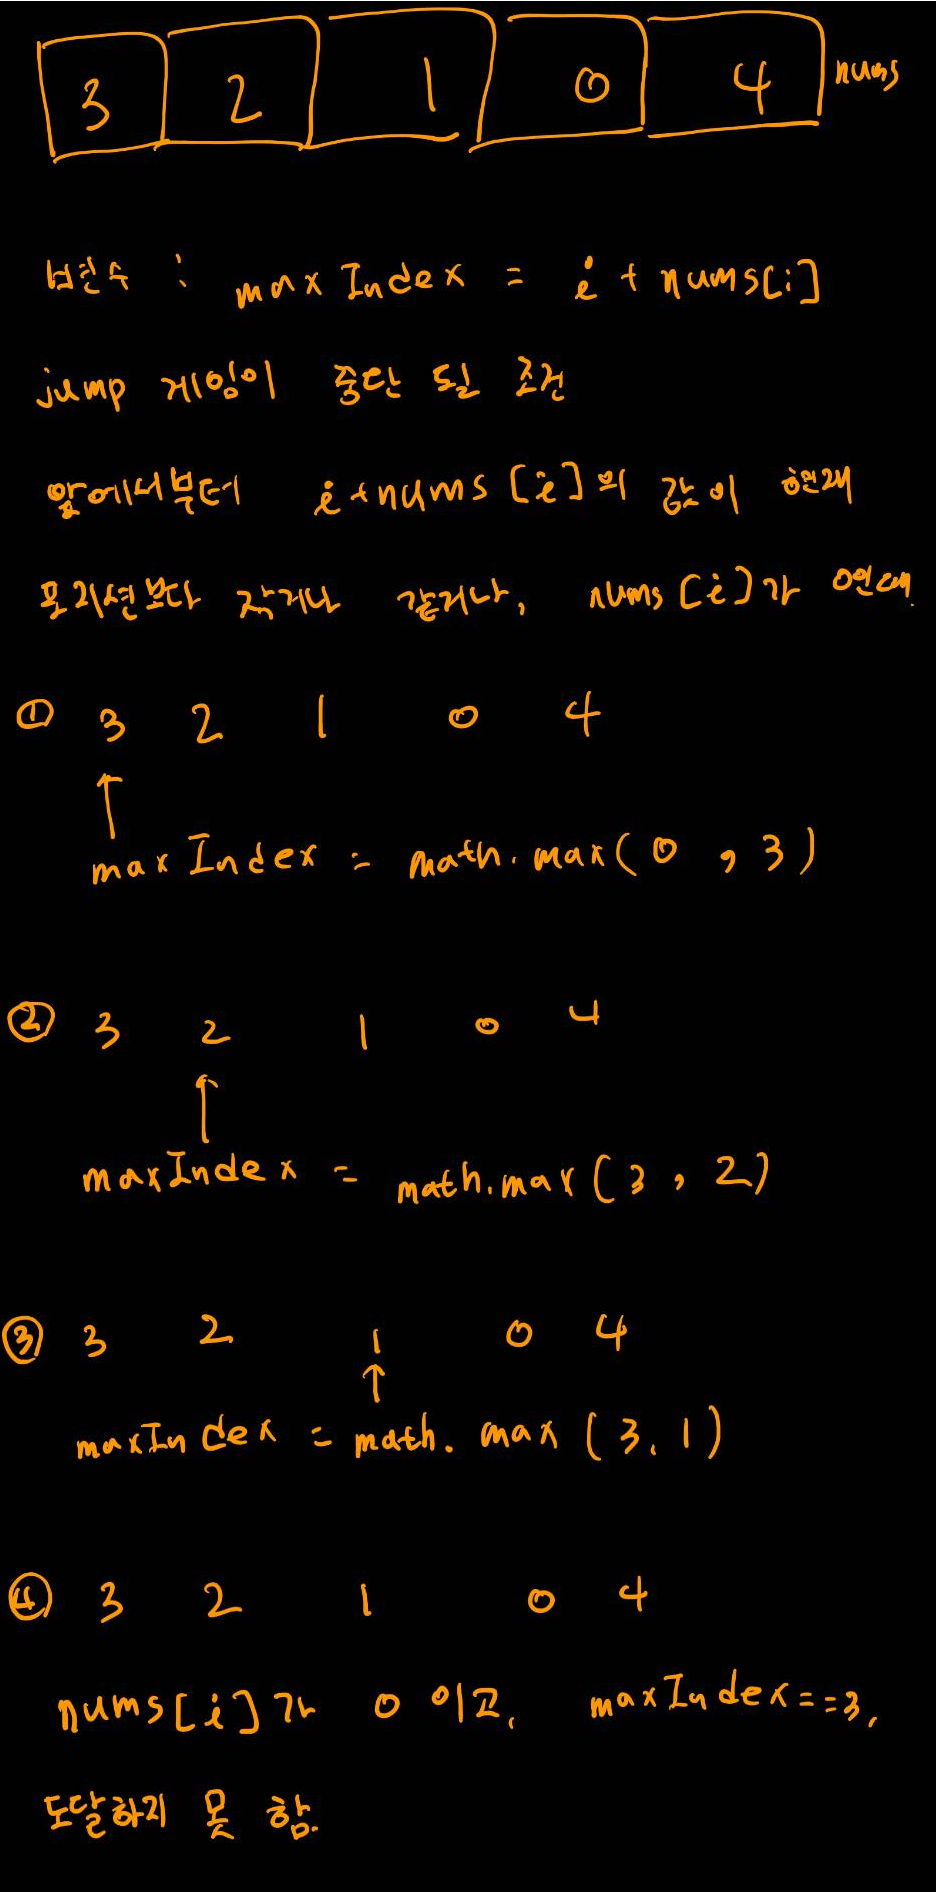 3 2 1 0 4 nums
변수 : maxIndex = i + nums[i]
jump 게임이 중단 될 조건
앞에서부터 i+nums[i]의 값이 현재
포지션보다 작거나 같거나, nums[i]가 0인데
① 3 2 1 0 4
maxIndex = math.max(0, 3)
② 3 2 1 0 4
maxIndex = math.max(3, 2)
③ 3 2 1 0 4
maxIndex = math.max(3, 1)
④ 3 2 1 0 4
nums[i]가 0 이고, maxIndex==3,
도달하지 못 함.